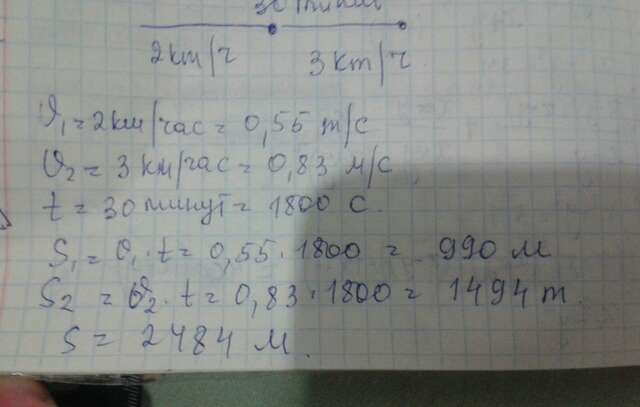 30 минут
2км/ч 3км/ч
υ₁ = 2км/час = 0,55 м/с
υ₂ = 3 км/час = 0,83 м/с
t = 30 минут = 1800 с.
S₁ = υ₁ · t = 0,55 · 1800 = 990 м
S₂ = υ₂ · t = 0,83 · 1800 = 1494 м.
S = 2484 м.